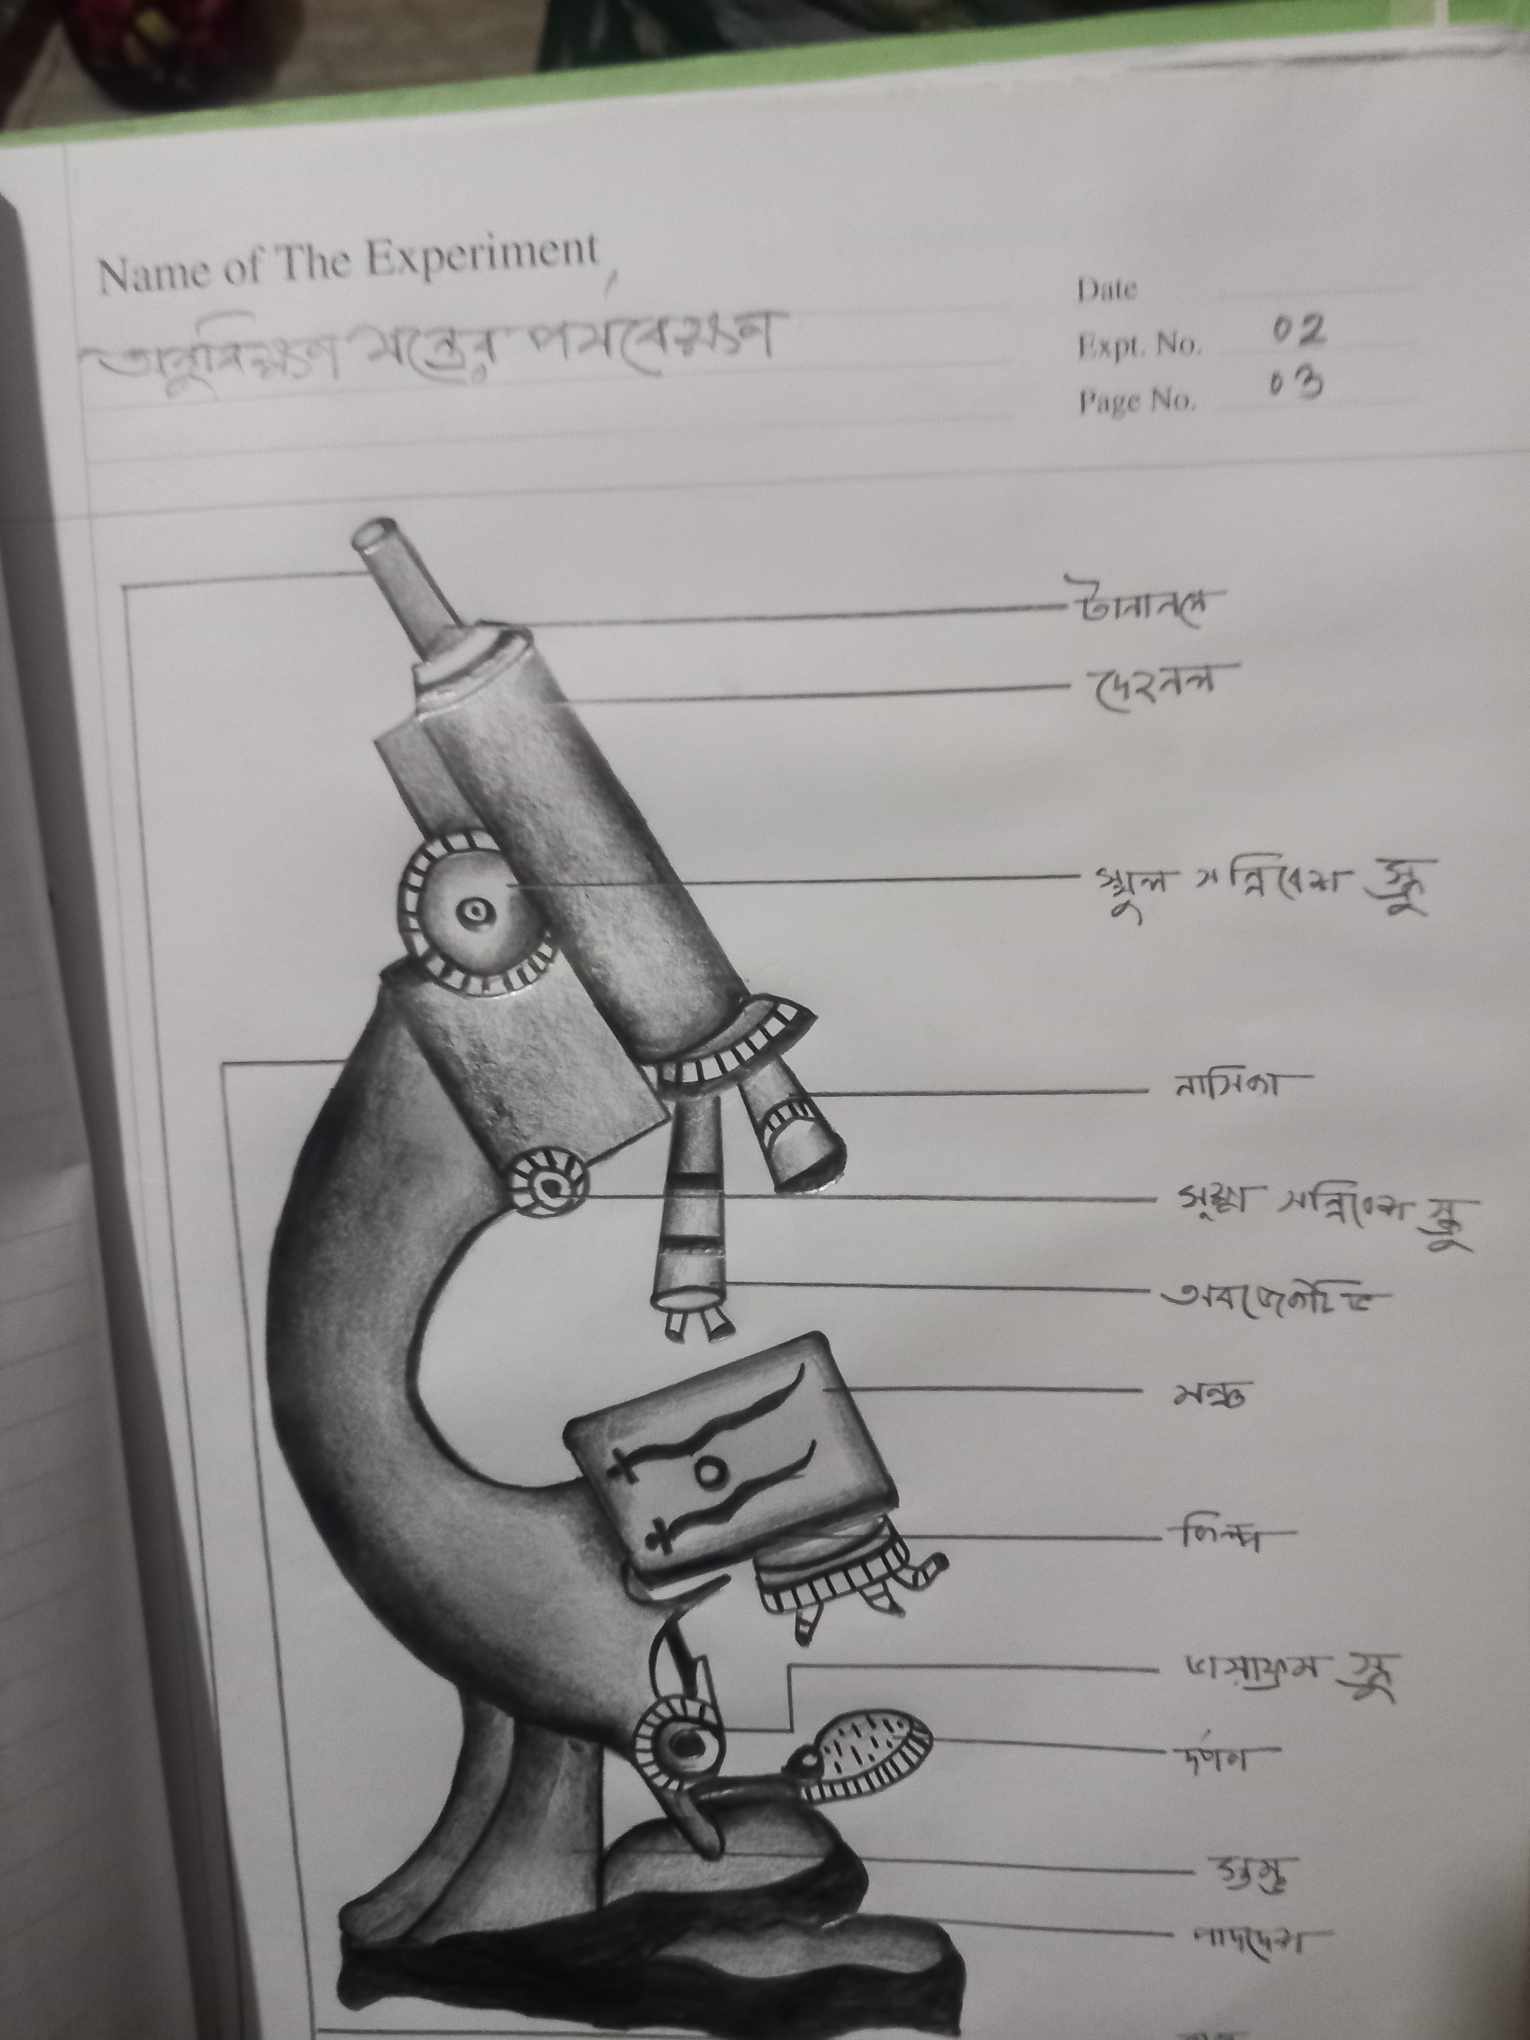 Name of The Experiment
অনুবিক্ষণ যন্ত্রের পর্যবেক্ষন
Date
Expt. No. 02
Page No. 03
টানানল
দেহনল
স্থুল সন্নিবেশ স্ক্রু
নাসিকা
সূক্ষ্ম সন্নিবেশ স্ক্রু
অবজেকটিভ
মঞ্চ
ক্লিপ
ডায়াফ্রাম স্ক্রু
দর্পন
স্তম্ভ
পাদদেশ